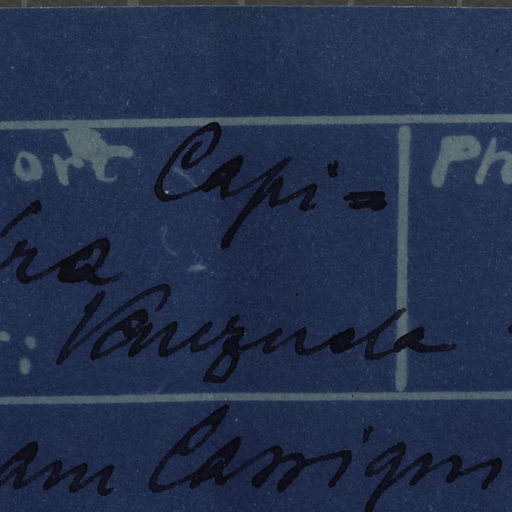 ort Capi= Ph
ra
Venezuela
am Cassigni